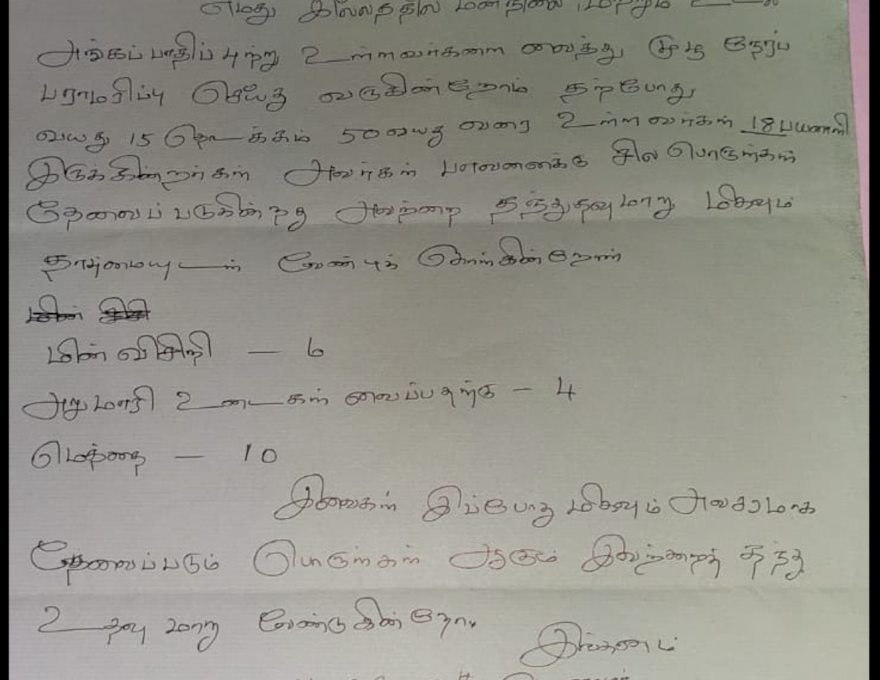 எமது இல்லத்தில் மனநிலை மற்றும் உடல்
அங்கப் பாதிப் புற்று உள்ளவர்களை வைத்து முழு நேரப்
பராமரிப்பு செய்து வருகின்றோம் தற்போது
வயது 15 தொடக்கம் 50 வயது வரை உள்ளவர்கள் 18 பயனாளி
இருக்கின்றார்கள் அவர்கள் பாவனைக்கு சில பொருள்கள்
தேவைப் படுகின்றது அவற்றை தந்துதவுமாறு மிகவும்
தாழ்மையுடன் வேண்டிக் கொள்கின்றோன்
மின் விசிறி — 6
அலுமாரி உடைகள் வைப்பதற்கு — 4
மெத்தை — 10
இவைகள் இப்போது மிகவும் அவசரமாக
தேவைப்படும் பொருள்கள் ஆகும் இவற்றைத் தந்து
உதவு மாறு வேண்டுகின்றோ.
இங்கனம்